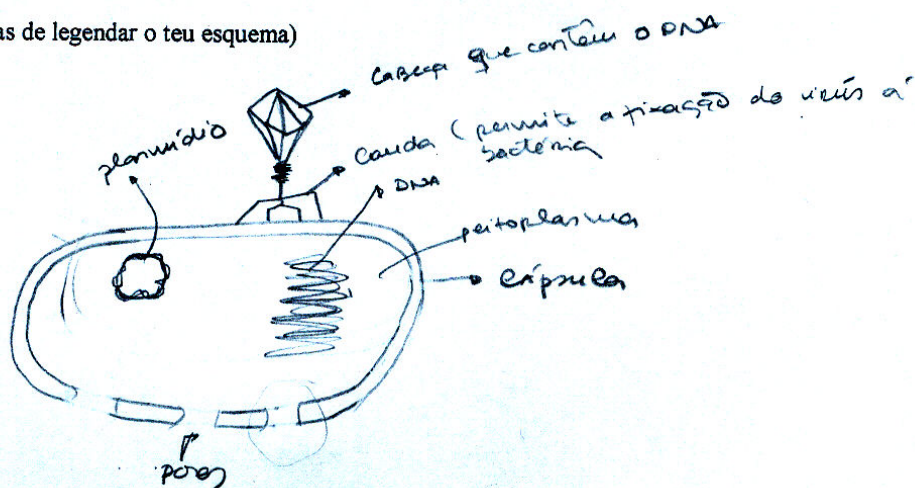 as de legendar o teu esquema)
Cabeça que contêm o DNA
plasmídio
cauda (permite a fixação do vírus á
bactéria
DNA
peitoplasma
cápsula
poros